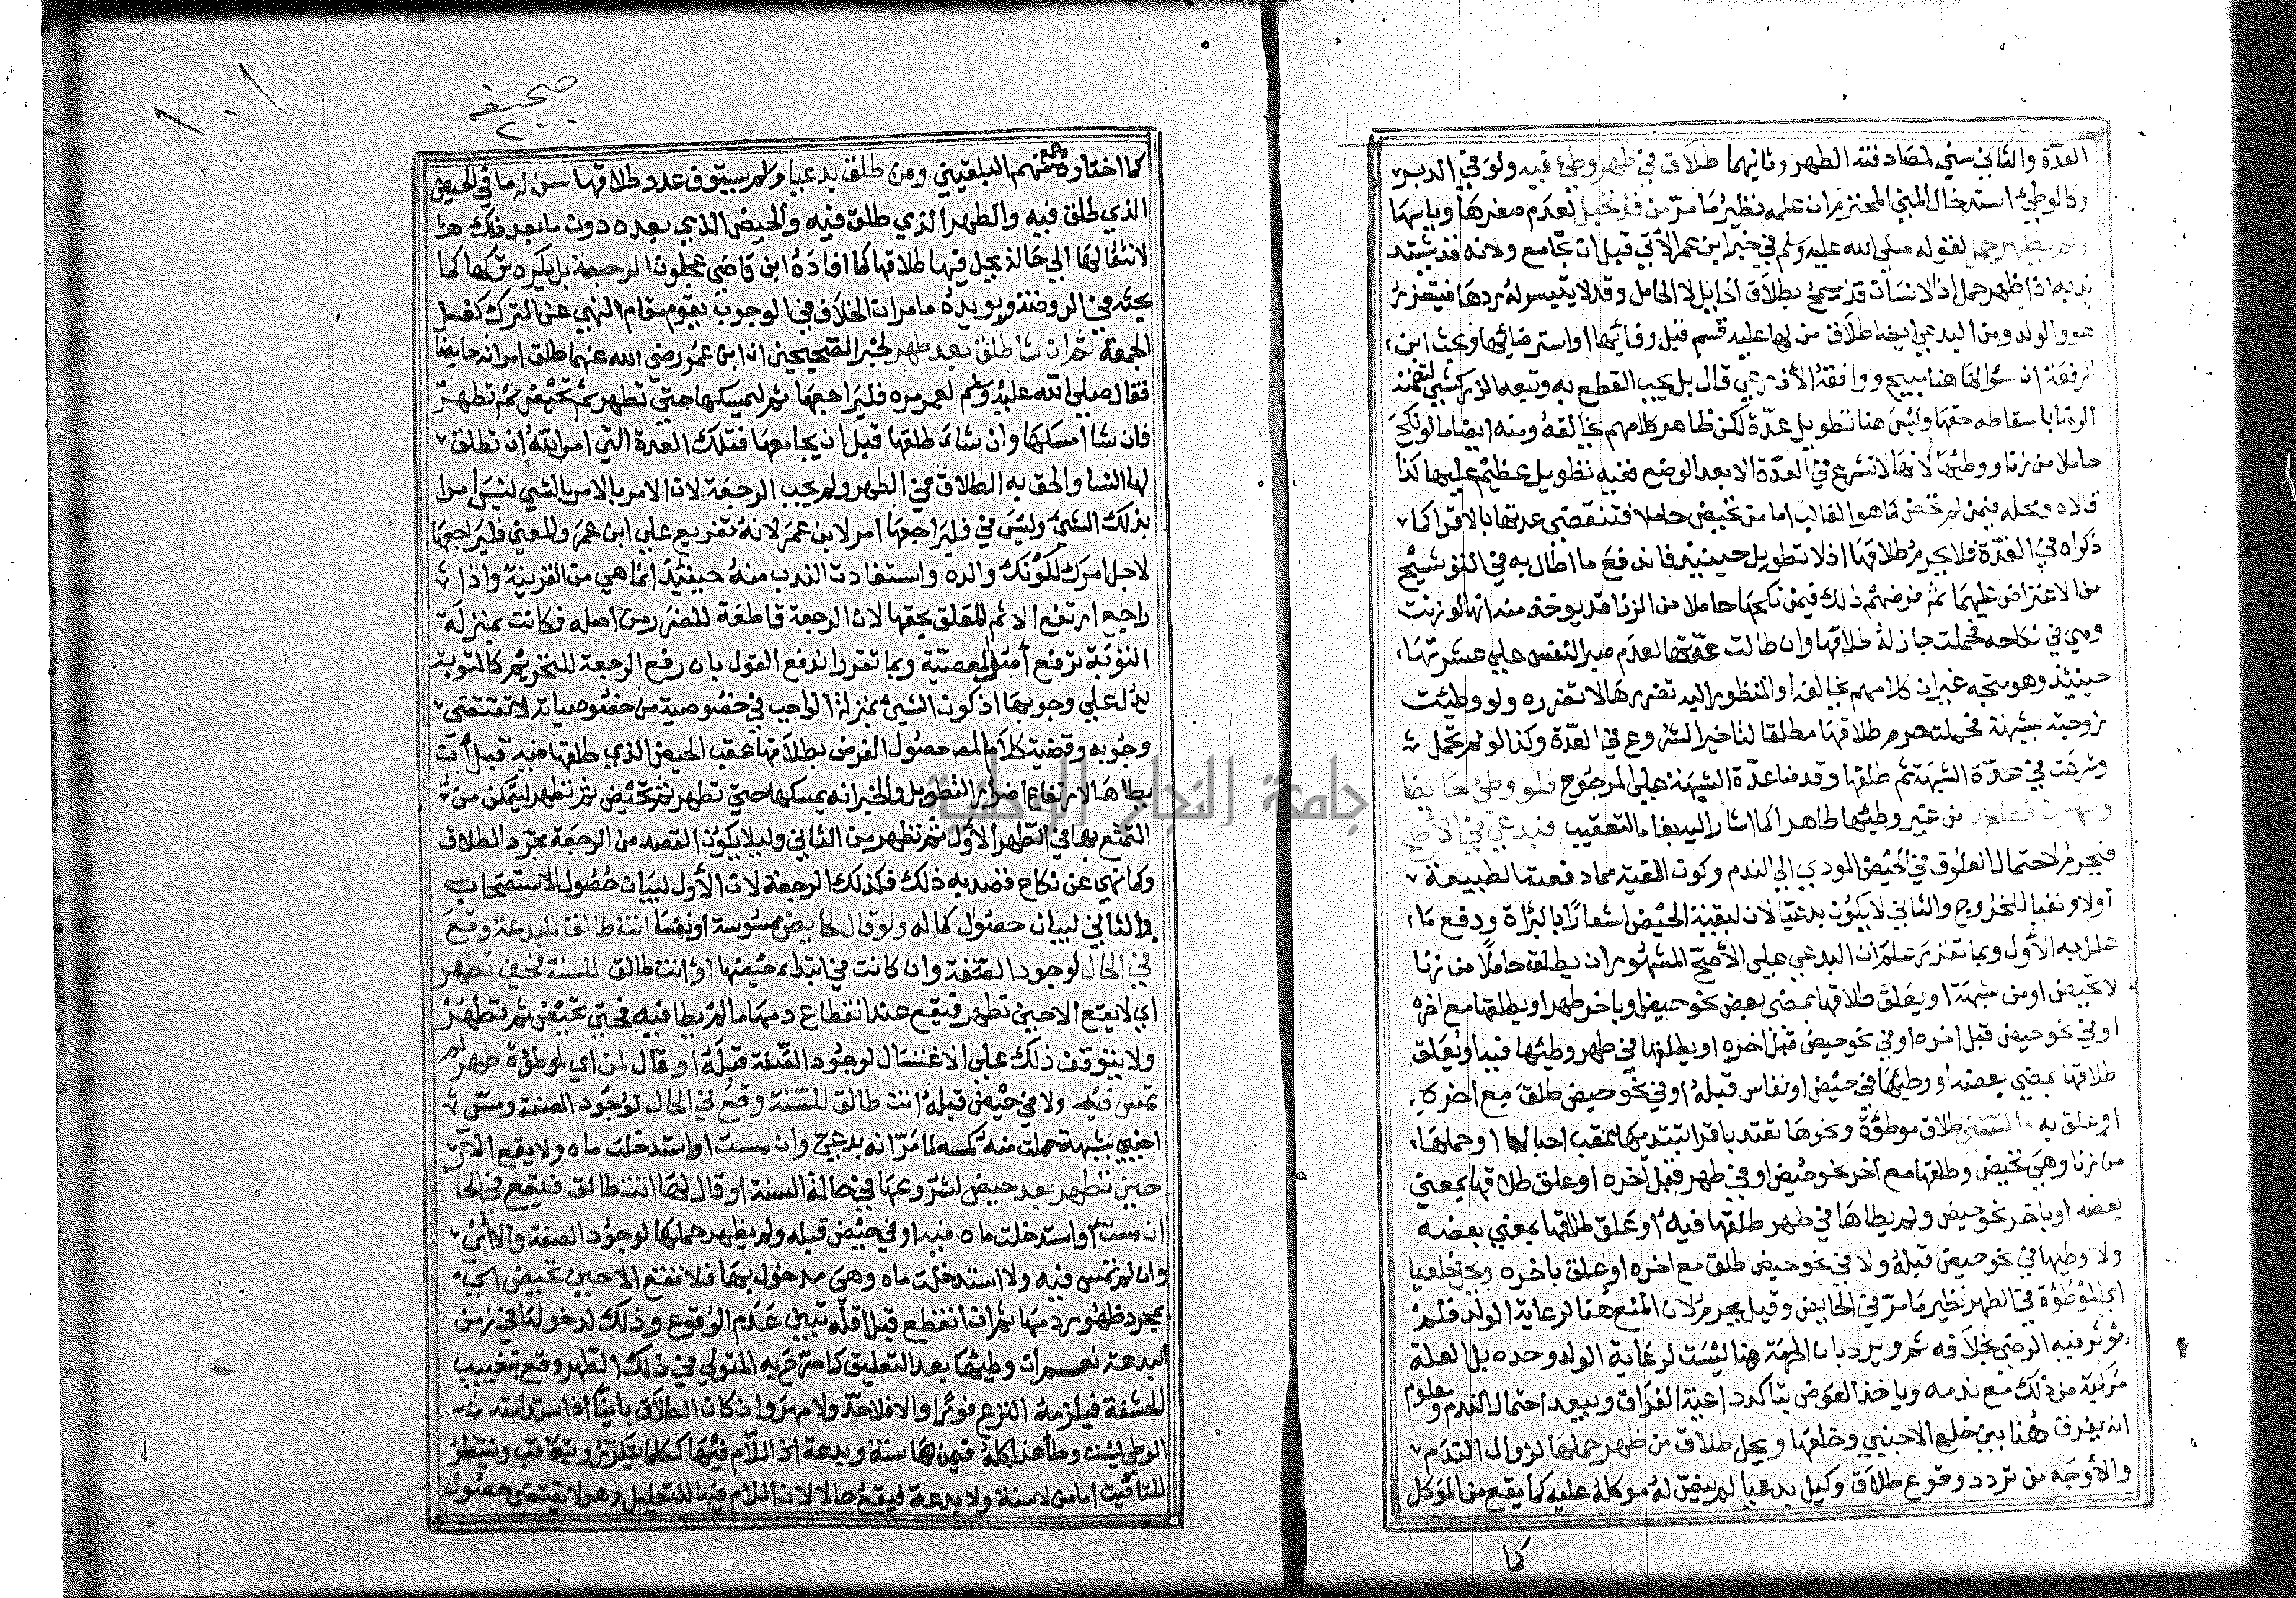 العدة والثاني سني لمصادفته الطهر وثانيهما طلاق في طهر وطئ فيه ولو في الدبر
وكالوطئ استدخال المني المحترم ان علمه نظير ما مر من قد تحبل لعدم صغرها وياسها
ولم يظهر حمل لقوله صلي الله عليه وسلم في خبر ابن عمر الاتي قبل ان يجامع ولانه قد يشتد
ندمه اذا ظهر حمل اذ الانسان قد يسمح بطلاق الحايل لا الحامل وقد لا يتيسر له ردها فيتضرر
هو والولد ومن البدعي ايضا طلاق من لها عليه قسم قبل وفائها او استرضائها وبحث ابن
الرفعة ان سؤالها هنا مبيح ووافقه الأذرعي قال بل يجب القطع به وتبعه الزركشي لتضمنه
الرضا باسقاطه حقها وليس هنا تطويل عدة لكن ظاهر كلامهم يخالفه ومنه ايضا ما لو نكح
حاملا من زنا ووطئها لانها لا تشرع في العدة الا بعد الوضع ففيه تطويل عظيم عليها كذا
قالاه ومحله فيمن لم تحض كما هو الغالب اما من تحيض حاملا فتنقضي عدتها بالاقرا كما
ذكراه في العدة فلا يحرم طلاقها اذ لا تطويل حينئذ فاندفع ما اطال به في التوشيح
من الاعتراض عليهما ثم فرضهم ذلك فيمن نكحها حاملا من الزنا قد يوخذ منه انها لو زنت
وهي في نكاحه فحملت جاز له طلاقها وان طالت عدتها لعدم صبر النفس علي عشرتها
حينئذ وهو متجه غير ان كلامهم يخالفه اذ المنظور اليه تضررها لا تضرره ولو وطئت
زوجته بشبهة فحملت حرم طلاقها مطلقا لتاخير الشروع في العدة وكذا لو لم تحمل
وشرعت في عدة الشبهة ثم طلقها وقدمنا عدة الشبهة علي المرجوح فلو وطئ حايضا
وطهرت فطلقها من غير وطئها طاهرا كما اشار اليه بفا التعقيب فبدعي في الأصح
فيحرم لاحتمال العلوق في الحيض المودي الي الندم وكون البقية مما دفعته الطبيعة
أولا وتهيا للخروج والثاني لا يكون بدعيا لان لبقية الحيض اشعارا بالبراة ودفع ما
علل به الأول وبما تقرر علم ان البدعي علي الأصح المشهور ان يطلق حاملا من زنا
لا تحيض او من شبهة او يعلق طلاقها بمضي بعض نحو حيض او باخر طهر او يطلقها مع اخره
او في نحو حيض قبل اخره او في نحو حيض قبل اخره او يطلقها في طهر وطئها فيه او يعلق
طلاقها بمضي بعضه او وطئها في حيض او نفاس قبله او في نحو حيض طلق مع اخره
او علق به السني طلاق موطؤة ونحوها تعتد باقرا تبتديها عقب احبالها او حملها
من زنا وهي تحيض وطلقها مع آخر نحو حيض او في طهر قبل آخره او علق طلاقها بمضي
بعضه او باخر نحو حيض ولم يطاها في طهر طلقها فيه او علق طلاقها بمضي بعضه
ولا وطيها في نحو حيض قبله ولا في نحو حيض طلق مع اخره او علق باخره ويحل خلعها
اي الموطؤة في الطهر نظير ما مر في الحايض وقيل يحرم لان المنع هنا لرعاية الولد فلم
يوثر فيه الرضي بخلافه ثم ويرد بان الحرمة هنا ليست لرعاية الولد وحده بل العلة
مركبة من ذلك مع ندمه وباخذ العوض يتاكد داعية الفراق ويبعد احتمال الندم ومعلوم
انه يفرق هنا بين خلع الاجنبي وخلعها ويحل طلاق من ظهر حملها لزوال الندم
والأوجه من تردد وقوع طلاق وكيل بدعيا لم ينص له موكله عليه كما يقع من الموكل
كما
صحيفه
٢٠٠
كما اختاره جمع منهم البلقيني ومن طلق بدعيا ولم يستوف عدد طلاقها سن له ما في الحيض
الذي طلق فيه والطهر الذي طلق فيه والحيض الذي بعده دون ما بعد ذلك
لانتقالها الي حالة يحل فيها طلاقها كما افاده ابن قاضي عجلون الرجعة بل يكره تركها كما
بحثه في الروضة ويويده ما مر ان الخلاف في الوجوب يقوم مقام النهي عن الترك كغسل
الجمعة ثم ان شا طلق بعد طهر لخبر الصحيحين ان ابن عمر رضي الله عنهما طلق امراته حايضا
فقال صلي الله عليه وسلم لعمر مره فليراجعها ثم ليمسكها حتي تطهر ثم تحيض ثم تطهر
فان شا امسكها وان شاء طلقها قبل ان يجامعها فتلك العدة التي امر الله أن تطلق
لها النسا والحق به الطلاق في الطهر ولم يجب الرجعة لان الامر بالامر بالشي ليس امرا
بذلك الشئ وليس في فليراجعها امر لابن عمر لانه تفريع علي ابن عمر والمعني فليراجعها
لاجل امرك لكونك والده واستفادت الندب منه حينئذ انما هي من القرينة واذا
راجع ارتفع الاثم المتعلق بحقها لان الرجعة قاطعة للضرر من اصله فكانت بمنزلة
التوبة ترفع أصل المعصية وبما تقرر اندفع القول بان رفع الرجعة للتحريم كالتوبة
يدل علي وجوبها اذ كون الشئ بمنزلة الواجب في خصوصية من خصوصياته لا تقتضي
وجوبه وقضية كلام المص حصول الغرض بطلاقها عقب الحيض الذي طلقها فيه قبل أن
يطاها لارتفاع اضرار التطويل والخبر انه يمسكها حتي تطهر ثم تحيض ثم تطهر ليتمكن من
التمتع بها في الطهر الأول ثم تطهر من الثاني وليلا يكون القصد من الرجعة مجرد الطلاق
وكما نهي عن نكاح قصد به ذلك فكذلك الرجعة لان الأول لبيان حصول الاستصحاب
والثاني لبيان حصول كماله ولو قال لحايض ممسوسة او نفسا انت طالق للبدعة وقع
في الحال لوجود الصفة وان كانت في ابتداء حيضها او انت طالق للسنة فحين تطهر
اي لا يقع الا حين تطهر فيقع عند انقطاع دمها ما لم يطا فيه فحتي تحيض ثم تطهر
ولا يتوقف ذلك علي الاغتسال لوجود الصفة قبله او قال لمن اي لموطؤة طهر لم
تمس فيه ولا في حيض قبله انت طالق للسنة وقع في الحال لوجود الصفة ومس
اجنبي بشبهة حملت منه كمسه لما مر انه بدعي وان مست او استدخلت ماه ولا يقع الا
حين تطهر بعد حيض لشروعها في حالة السنة او قال لها انت طالق فيقع في الحا
ان مست او استدخلت ماه فيه او في حيض قبله ولم يظهر حملها لوجود الصفة والا
وان لم تمس فيه ولا استدخلت ماه وهي مدخول بها فلا تقع الا حين تحيض اي
بمجرد ظهور دمها ثم ان انقطع قبل اقله تبين عدم الوقوع وذلك لدخولها في زمن
البدعة نعم ان وطئها بعد التعليق كما صرح به المتولي في ذلك الطهر وقع بتغييب
الحشفة فيلزمه النزع فورا والا فلا حد ولا مهر وان كان الطلاق باينا اذ استدامته
الوطي ليست وطأ هذا كله فيمن لها سنة وبدعة اذ اللام فيها كلما يتكرر ويتعاقب وينتظر
للتاقيت اما من لا سنة ولا بدعة فيقع حالا لان اللام فيها للتعليل وهو لا يقتضي حصول
جامعة النجاح الوطنية